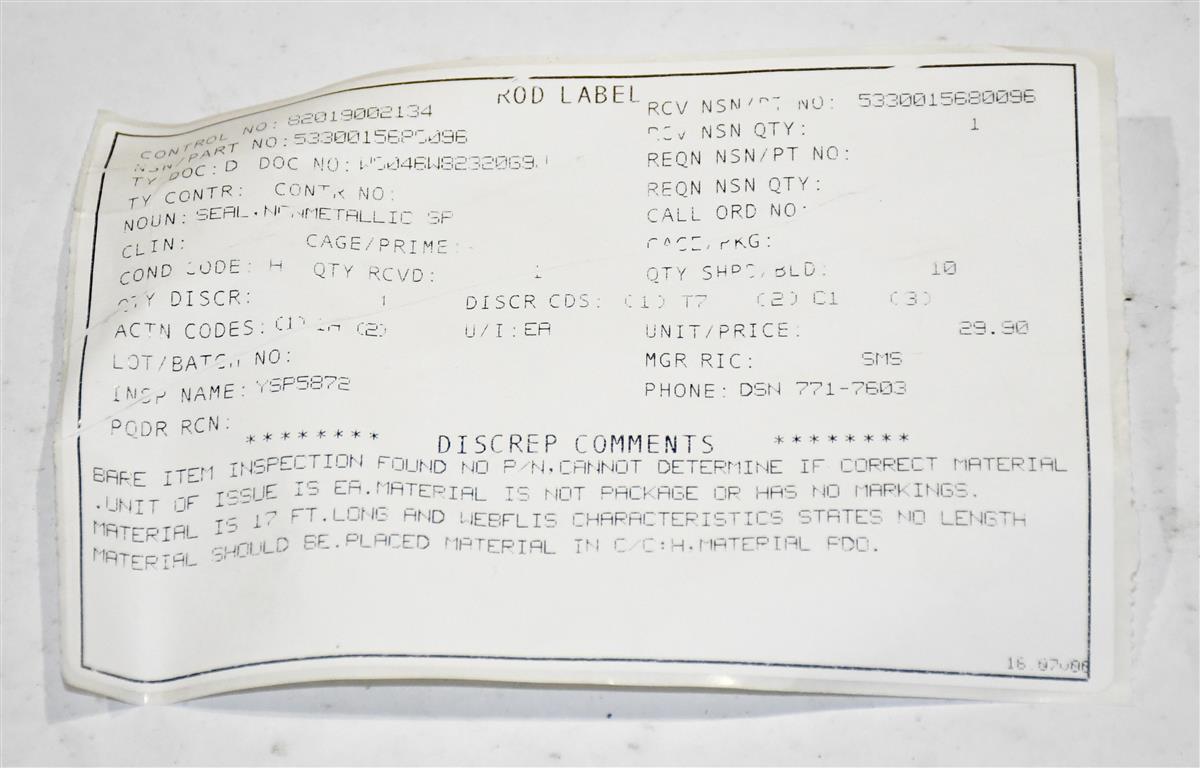 ROD LABEL
CONTROL NO: 82019002134 RCV NSN/PT NO: 5330015680096
NSN/PART NO: RCV NSN QTY: 1
TY DOC: D DOC NO: REQN NSN/PT NO:
TY CONTR: CONTR NO: REQN NSN QTY:
NOUN: SEAL,NONMETALLIC SP CALL ORD NO:
CLIN: CAGE/PRIME: CAGE/PKG:
COND CODE: H QTY RCVD: 1 QTY SHPD/BLD: 10
QTY DISCR: 1 DISCR CDS: (1) T7 (2) C1 (3)
ACTN CODES: (1) (2) U/I: EA UNIT/PRICE: 29.90
LOT/BATCH NO: MGR RIC: SMS
INSP NAME: YSP5872 PHONE: DSN 771-7603
PQDR RCN:
******** DISCREP COMMENTS ********
BARE ITEM INSPECTION FOUND NO P/N,CANNOT DETERMINE IF CORRECT MATERIAL
.UNIT OF ISSUE IS EA.MATERIAL IS NOT PACKAGE OR HAS NO MARKINGS.
MATERIAL IS 17 FT.LONG AND WEBFLIS CHARACTERISTICS STATES NO LENGTH
MATERIAL SHOULD BE.PLACED MATERIAL IN C/C:H.MATERIAL